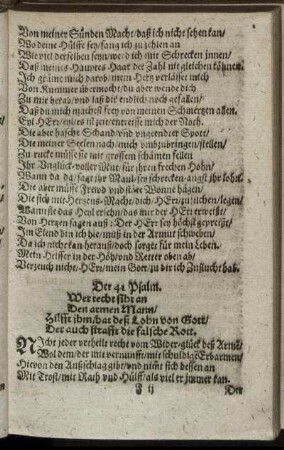 Von meiner Sünden Macht/ daß ich nicht sehen kan/
Wo deine Hülffe sey/ fang ich zu zehlen an
Wie viel derselben seyn/ werd ich mit Schrecken innen/
Daß meines Hauptes Haar der Zahl nit gleichen können.
Ich gräme mich darob/ mein Hertz verläßet mich
Von Kummer übermocht/ du aber wende dich
Zu mir herab/ und laß dir endlich noch gefallen/
Daß du mich machest frey von meinen Schmertzen allen.
Eyl HErr/ eyl/ es ist zeit/ entreiß mich der Noth.
Die aber habe Schand/ und
Die meiner Seelen nach/ mich umbzubringen/ stellen/
Zu rucke müsse sie mit grossem schämen fellen
Ihr Unglück voller Mut/ für ihren frechen Hohn/
Wann da da/ sagt ihr Maul/
Die aber müsse Frewd und stäte Wonne hägen/
Die sich mit Hertzens-Macht/ dich/ HErr/ zu suchen/ legen/
Allen die das Heyl erzehn/ das mir der HErr erweißt/
Von Hertzen sagen auß: Der HErr sey höchst gepreißt/
Im Elend bin ich hie/ muß in der Armut schweben/
Da ich nicht kan herauß/ doch sorget für mein Leben.
Mein Helffer in der Höh/ und Retter oben ab/
Verzeuch nicht/ HErr/ mein Gott/ zu dir ich Zuflucht hab.
Der 41 Psalm.
Wer recht siht an
Den armen Mann/
Hilfft ihm/ hat deß Lohn von Gott/
Der auch strafft die falsche Rott.
Nicht jeder urtheilt recht vom Wider-glück deß Armë/
Wol dem/ der mit vernunfft/ mit schuldigë Erbarmen/
Hievon den Außschlag gibt/ und nimt sich dessen an
Mit Trost/ mit Rath und Hülff/ als viel er immer kan.
F ij Der